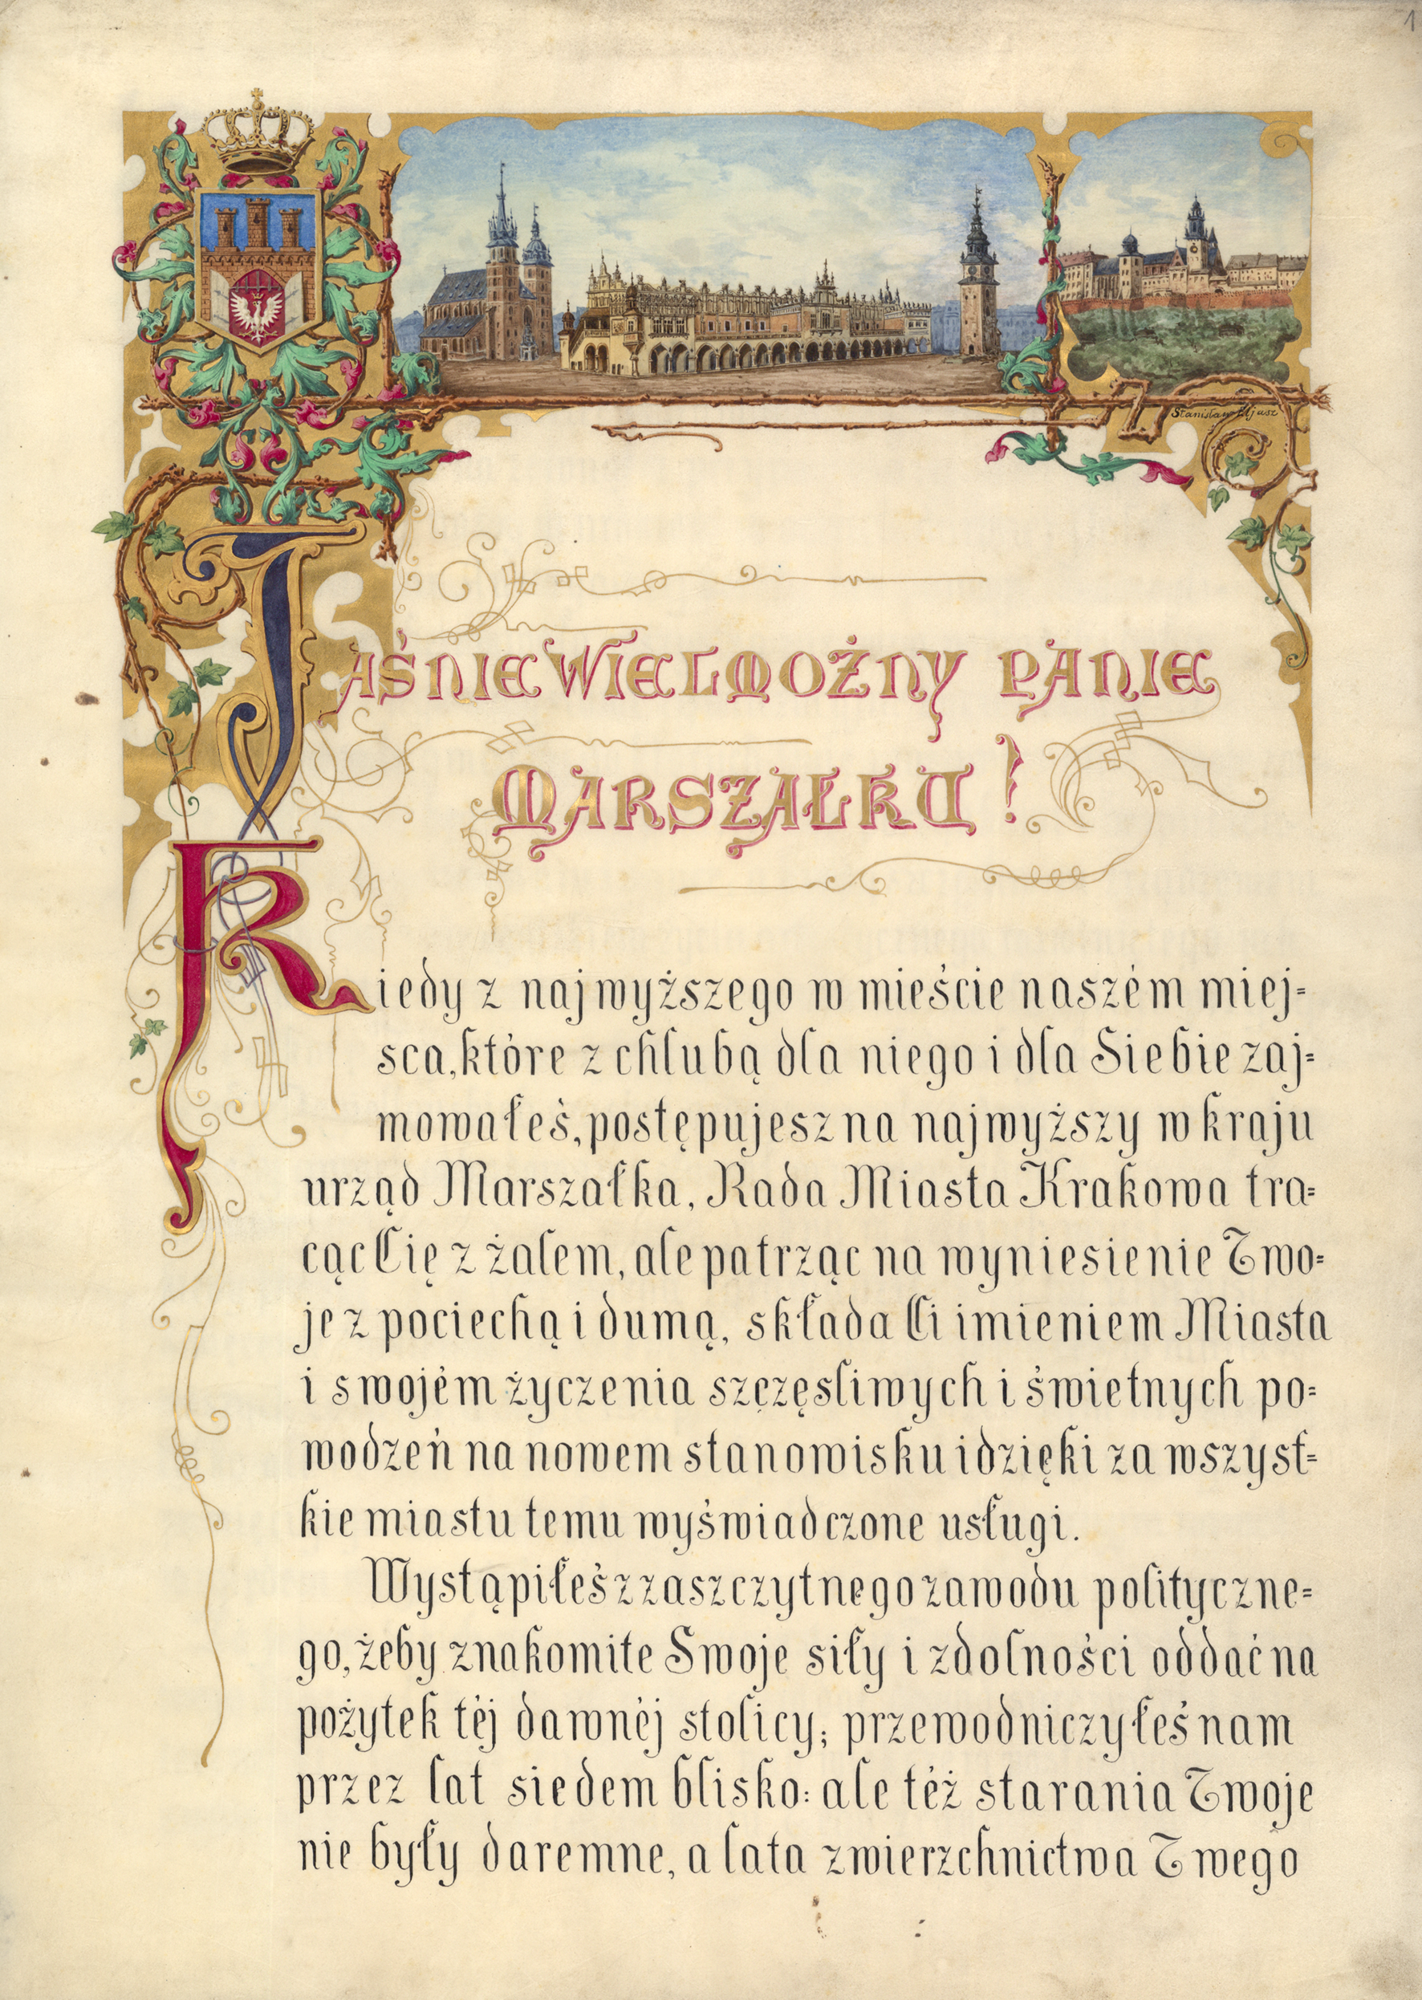 1
Stanisław Tjusz
JAŚNIE WIELMOŻNY PANIE
MARSZAŁKU!
Kiedy z najwyższego w mieście naszém miej=
sca, które z chlubą dla niego i dla Siebie zaj=
mowałeś, postępujesz na najwyższy w kraju
urząd Marszałka, Rada Miasta Krakowa tra=
cąc Cię z żalem, ale patrząc na wyniesienie Two=
je z pociechą i dumą, składa Ci imieniem Miasta
i swojém życzenia szczęsliwych i świetnych po=
wodzeń na nowem stanowisku i dzięki za wszyst=
kie miastu temu wyświadczone usługi.
Wystąpiłeś z zaszczytnego zawodu polityczne=
go, żeby znakomite Swoje siły i zdolności oddać na
pożytek téj dawnéj stolicy; przewodniczyłeś nam
przez lat siedem blisko: ale téż starania Twoje
nie były daremne, a lata zwierzchnictwa Twego